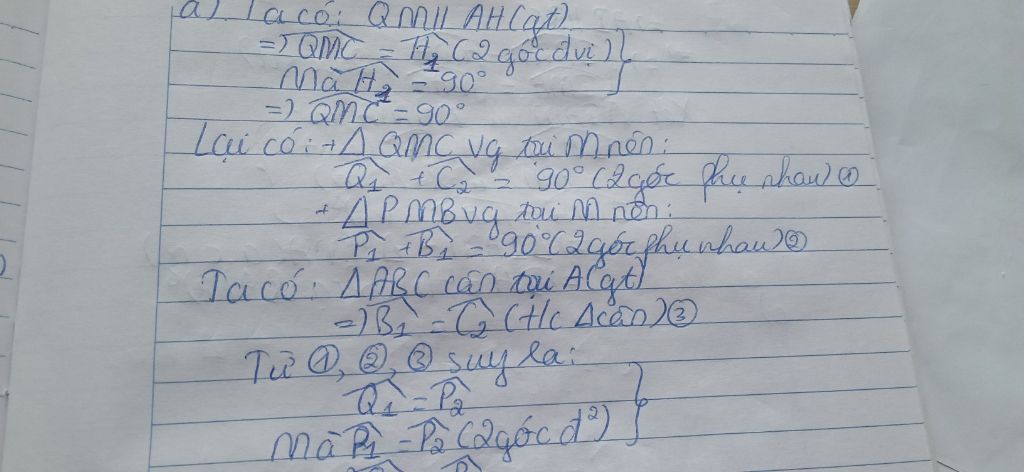 a) Ta có: QM // AH (gt)
=> QMC = H1 (2 góc đvị)
Mà H1 = 90°
=> QMC = 90°
Lại có: + Δ QMC vg tại M nên:
Q1 + C2 = 90° (2 góc phụ nhau) ①
+ Δ PMB vg tại M nên:
P1 + B1 = 90° (2 góc phụ nhau) ②
Ta có: ΔABC cân tại A (gt)
=> B1 = C2 (t/c Δcân) ③
Từ ①, ②, ③ suy la:
Q1 = P2
Mà P1 = P2 (2 góc đ²)